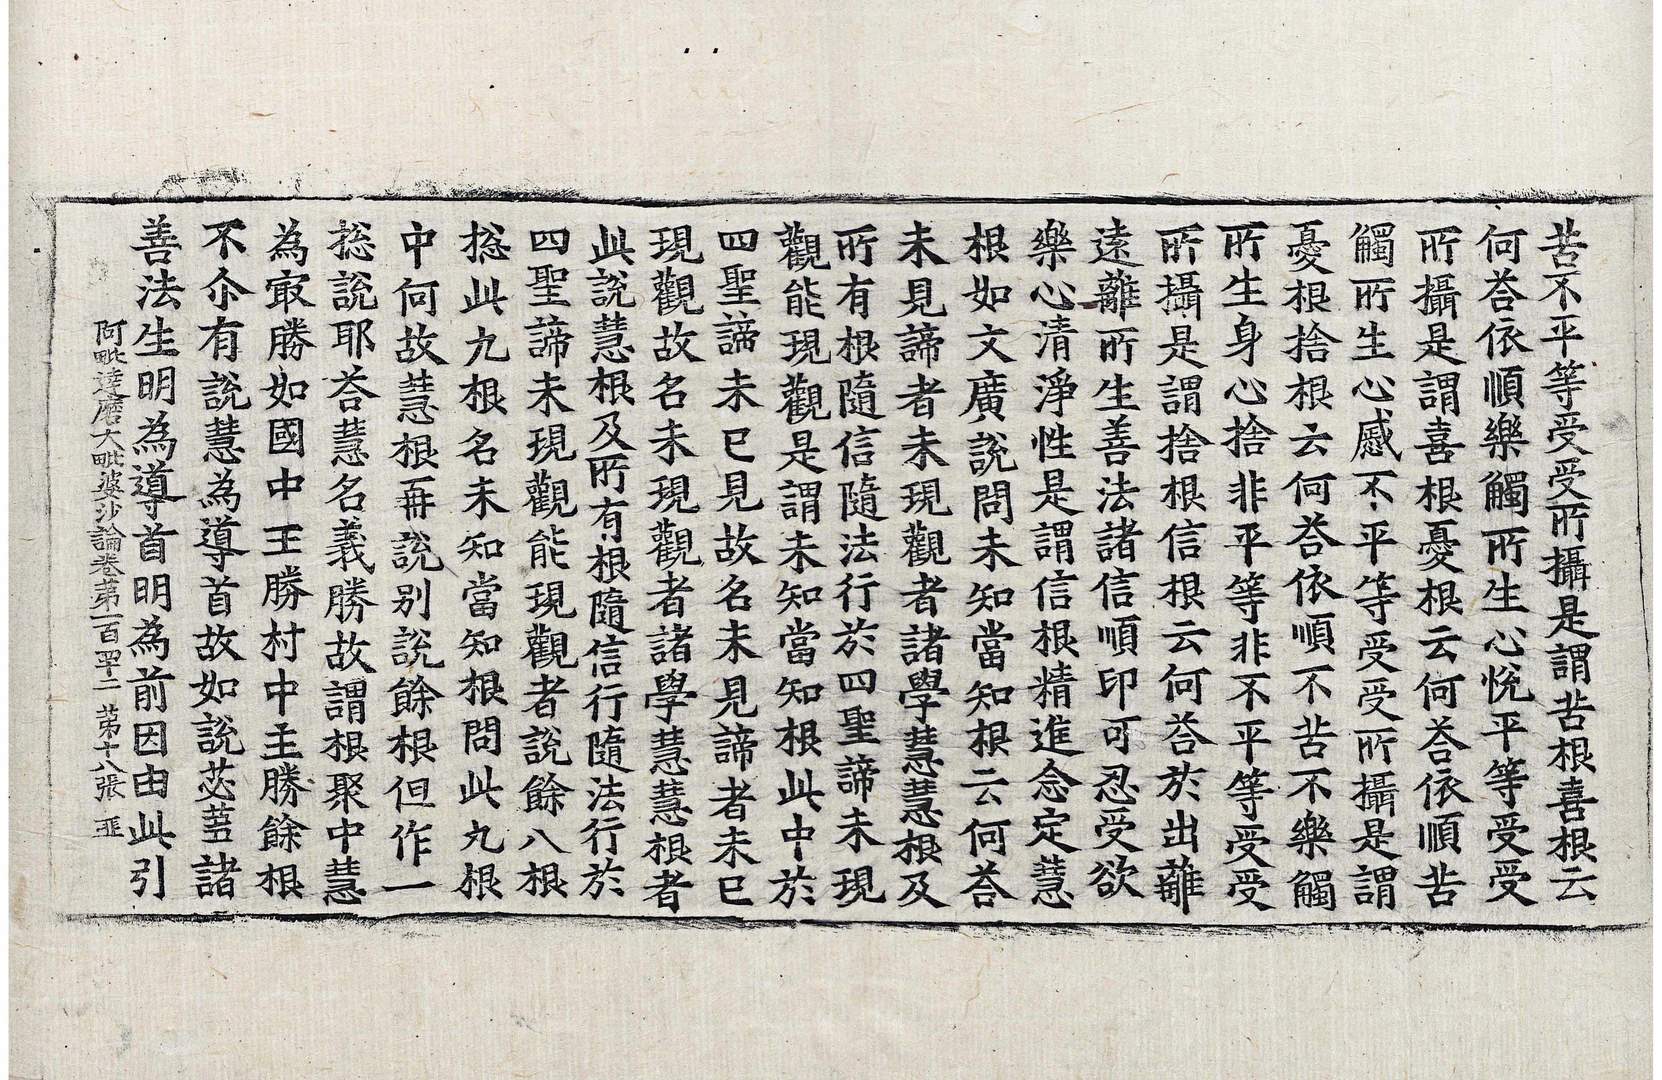 苦不平等受受所攝是謂苦根喜根云
何荅依順樂觸所生心悅平等受受
所攝是謂喜根憂根云何荅依順苦
觸所生心慼不平等受受所攝是謂
憂根捨根云何荅依順不苦不樂觸
所生身心捨非平等非不平等受受
所攝是謂捨根信根云何荅於出離
遠離所生善法諸信順印可忍受欲
樂心清淨性是謂信根精進念定慧
根如文廣說問未知當知根云何荅
未見諦者未現觀者諸學慧慧根及
所有根隨信隨法行於四聖諦未現
觀能現觀是謂未知當知根此中於
四聖諦未已見故名未見諦者未已
現觀故名未現觀者諸學慧慧根者
此說慧根及所有根隨信行隨法行於
四聖諦未現觀能現觀者說餘八根
捴此九根名未知當知根問此九根
中何故慧根再說別說餘根但作一
捴說耶荅慧名義勝故謂根聚中慧
為㝡勝如國中王勝村中主勝餘根
不尒有說慧為導首故如說苾蒭諸
善法生明為導首明為前因由此引
阿毗達磨大毗婆沙論卷第一百四十二 第十八張 匪